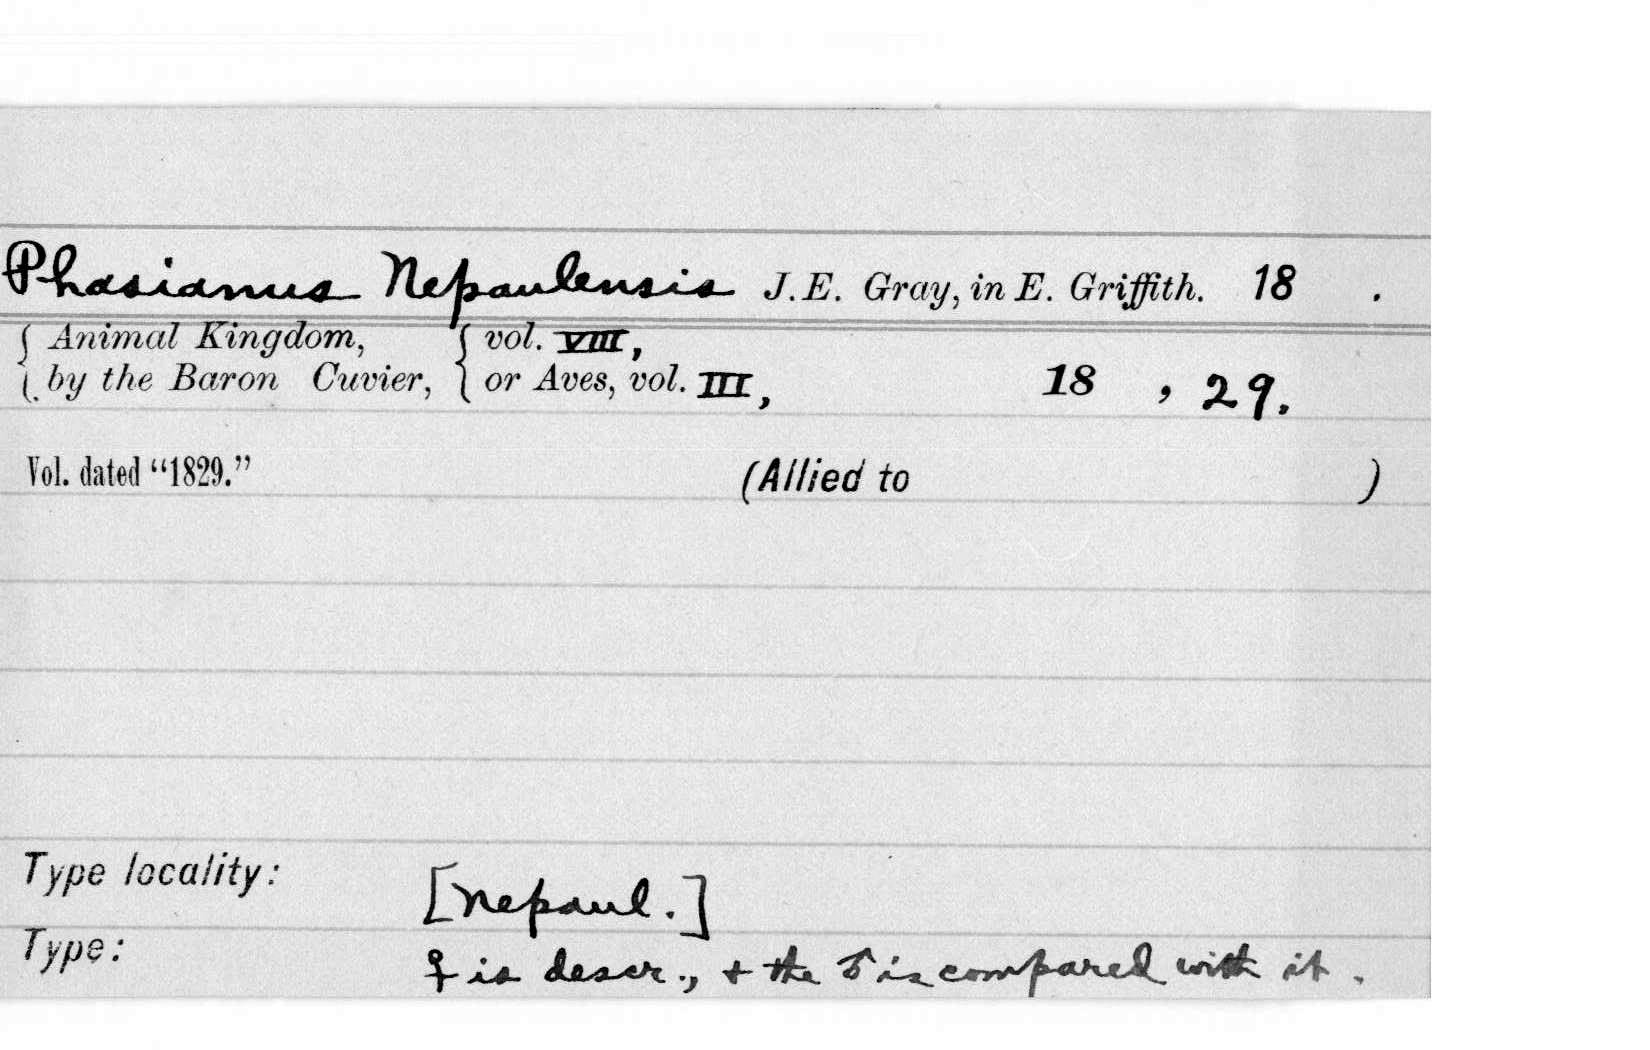 Phasianus Nepaulensis J.E. Gray, in E. Griffith. 18 .
{ Animal Kingdom, { vol. VIII,
{ by the Baron Cuvier, { or Aves, vol. III, 18 , 29.
Vol. dated “1829.” (Allied to )
Type locality: [Nepaul.]
Type: ♀ is descr., + the ♂ is compared with it.